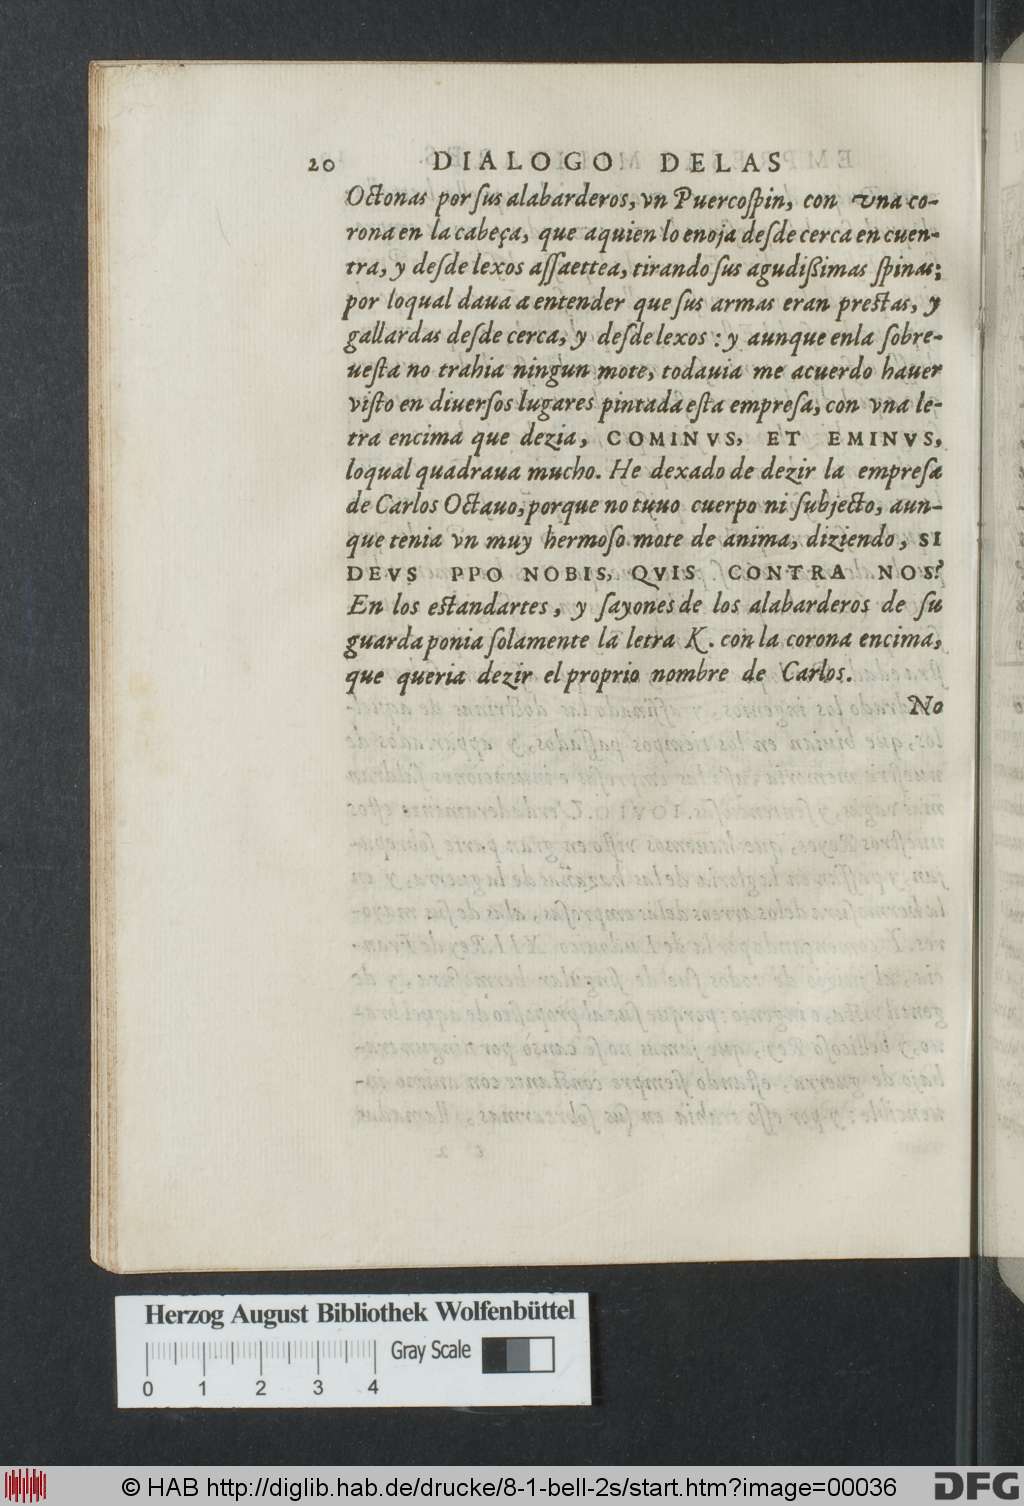 20 DIALOGO DELAS
Octonas por ſus alabarderos, vn Puercoſpin, con vna co-
rona en la cabeça, que aquien lo enoja deſde cerca en cuen-
tra, y deſde lexos aſſaettea, tirando ſus agudißimas ſpinas;
por loqual daua a entender que ſus armas eran prestas, y
gallardas deſde cerca, y deſde lexos : y aunque enla ſobre-
ueſta no trahia ningun mote, todauia me acuerdo hauer
viſto en diuerſos lugares pintada eſta empreſa, con vna le-
tra encima que dezia, COMINVS, ET EMINVS,
loqual quadraua mucho. He dexado de dezir la empreſa
de Carlos Octauo, porque no tuuo cuerpo ni ſubjecto, aun-
que tenia vn muy hermoſo mote de anima, diziendo, SI
DEVS PPO NOBIS, QVIS CONTRA NOS?
En los eſtandartes, y ſayones de los alabarderos de ſu
guarda ponia ſolamente la letra K. con la corona encima,
que queria dezir el proprio nombre de Carlos.
No
Herzog August Bibliothek Wolfenbüttel
Gray Scale
0 1 2 3 4
© HAB http://diglib.hab.de/drucke/8-1-bell-2s/start.htm?image=00036
DFG